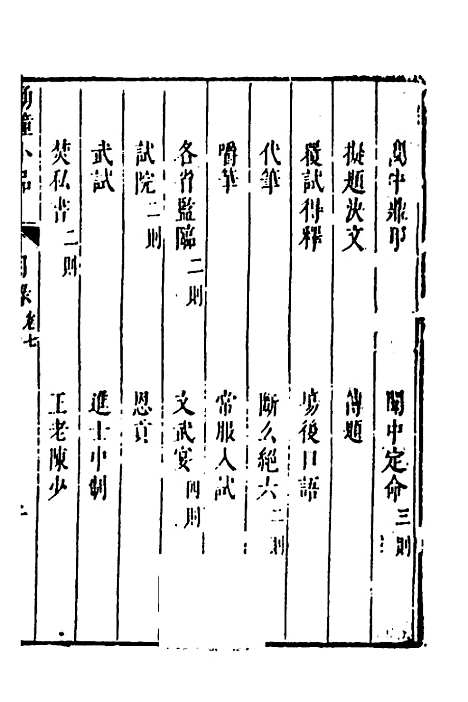 閨中定命三則
擬題決文
傳題
覆試得釋
場後口語
代筆
斷么絕六二則
嚼筆
常服入試
各省監臨二則
文武宴四則
試院二則
恩貢
武試
進士中制
焚私書二則
王老陳少
湧幢小品
目錄卷七